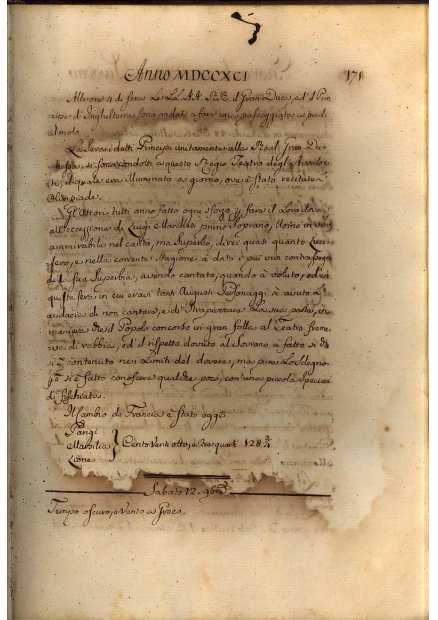 Anno MDCCXCI
171
Alle ore 4 di sera Le LL. AA. RR. il Gran-Duca, ed'il Prin
cipe d'Inghilterra sono andati a fare una passeggiata a piedi
al molo.
La Sera i detti Principi unitamente alla Real Gran-Du
chessa, si sono condotti a questo Regio Teatro degl'Avvalora
ti, il quale era illuminato a giorno, ove è stata recitata
Olimpiade.
Gl'Attori tutti anno fatto ogni sforzo di fare il Loro dovere
all'eccezione di Luigi Marchesi primo Soprano, Uomo in vero
ammirabile nel canto, ma Superbo, direi quasi quanto Luci
fero, e nella corrente Stagione à dato i più vivi contrasegni
della sua Superbia, avendo cantato, quando à voluto, ed in
questa sera in cui erano tanti Augusti Personaggi à avuto l'
audacia di non cantare, e di strapazzare La sua parte, in
maniera che il Popolo concorso in gran folla al Teatro freme
va di rabbia, ed il rispetto dovuto al Sovrano à fatto si che
si è contenuto nei Limiti del dovere, ma pure Lo Sdegno
si è fatto conoscere qualche poco, con una piccola Specie
di Fischiata.
Il Cambio di Francia è stato oggi
Parigi
Marsilia } Cento Vent'otto, e tre quarti 128 3/4
Lione
Sabato 12. 9bre
Tempo oscuro, e Vento a